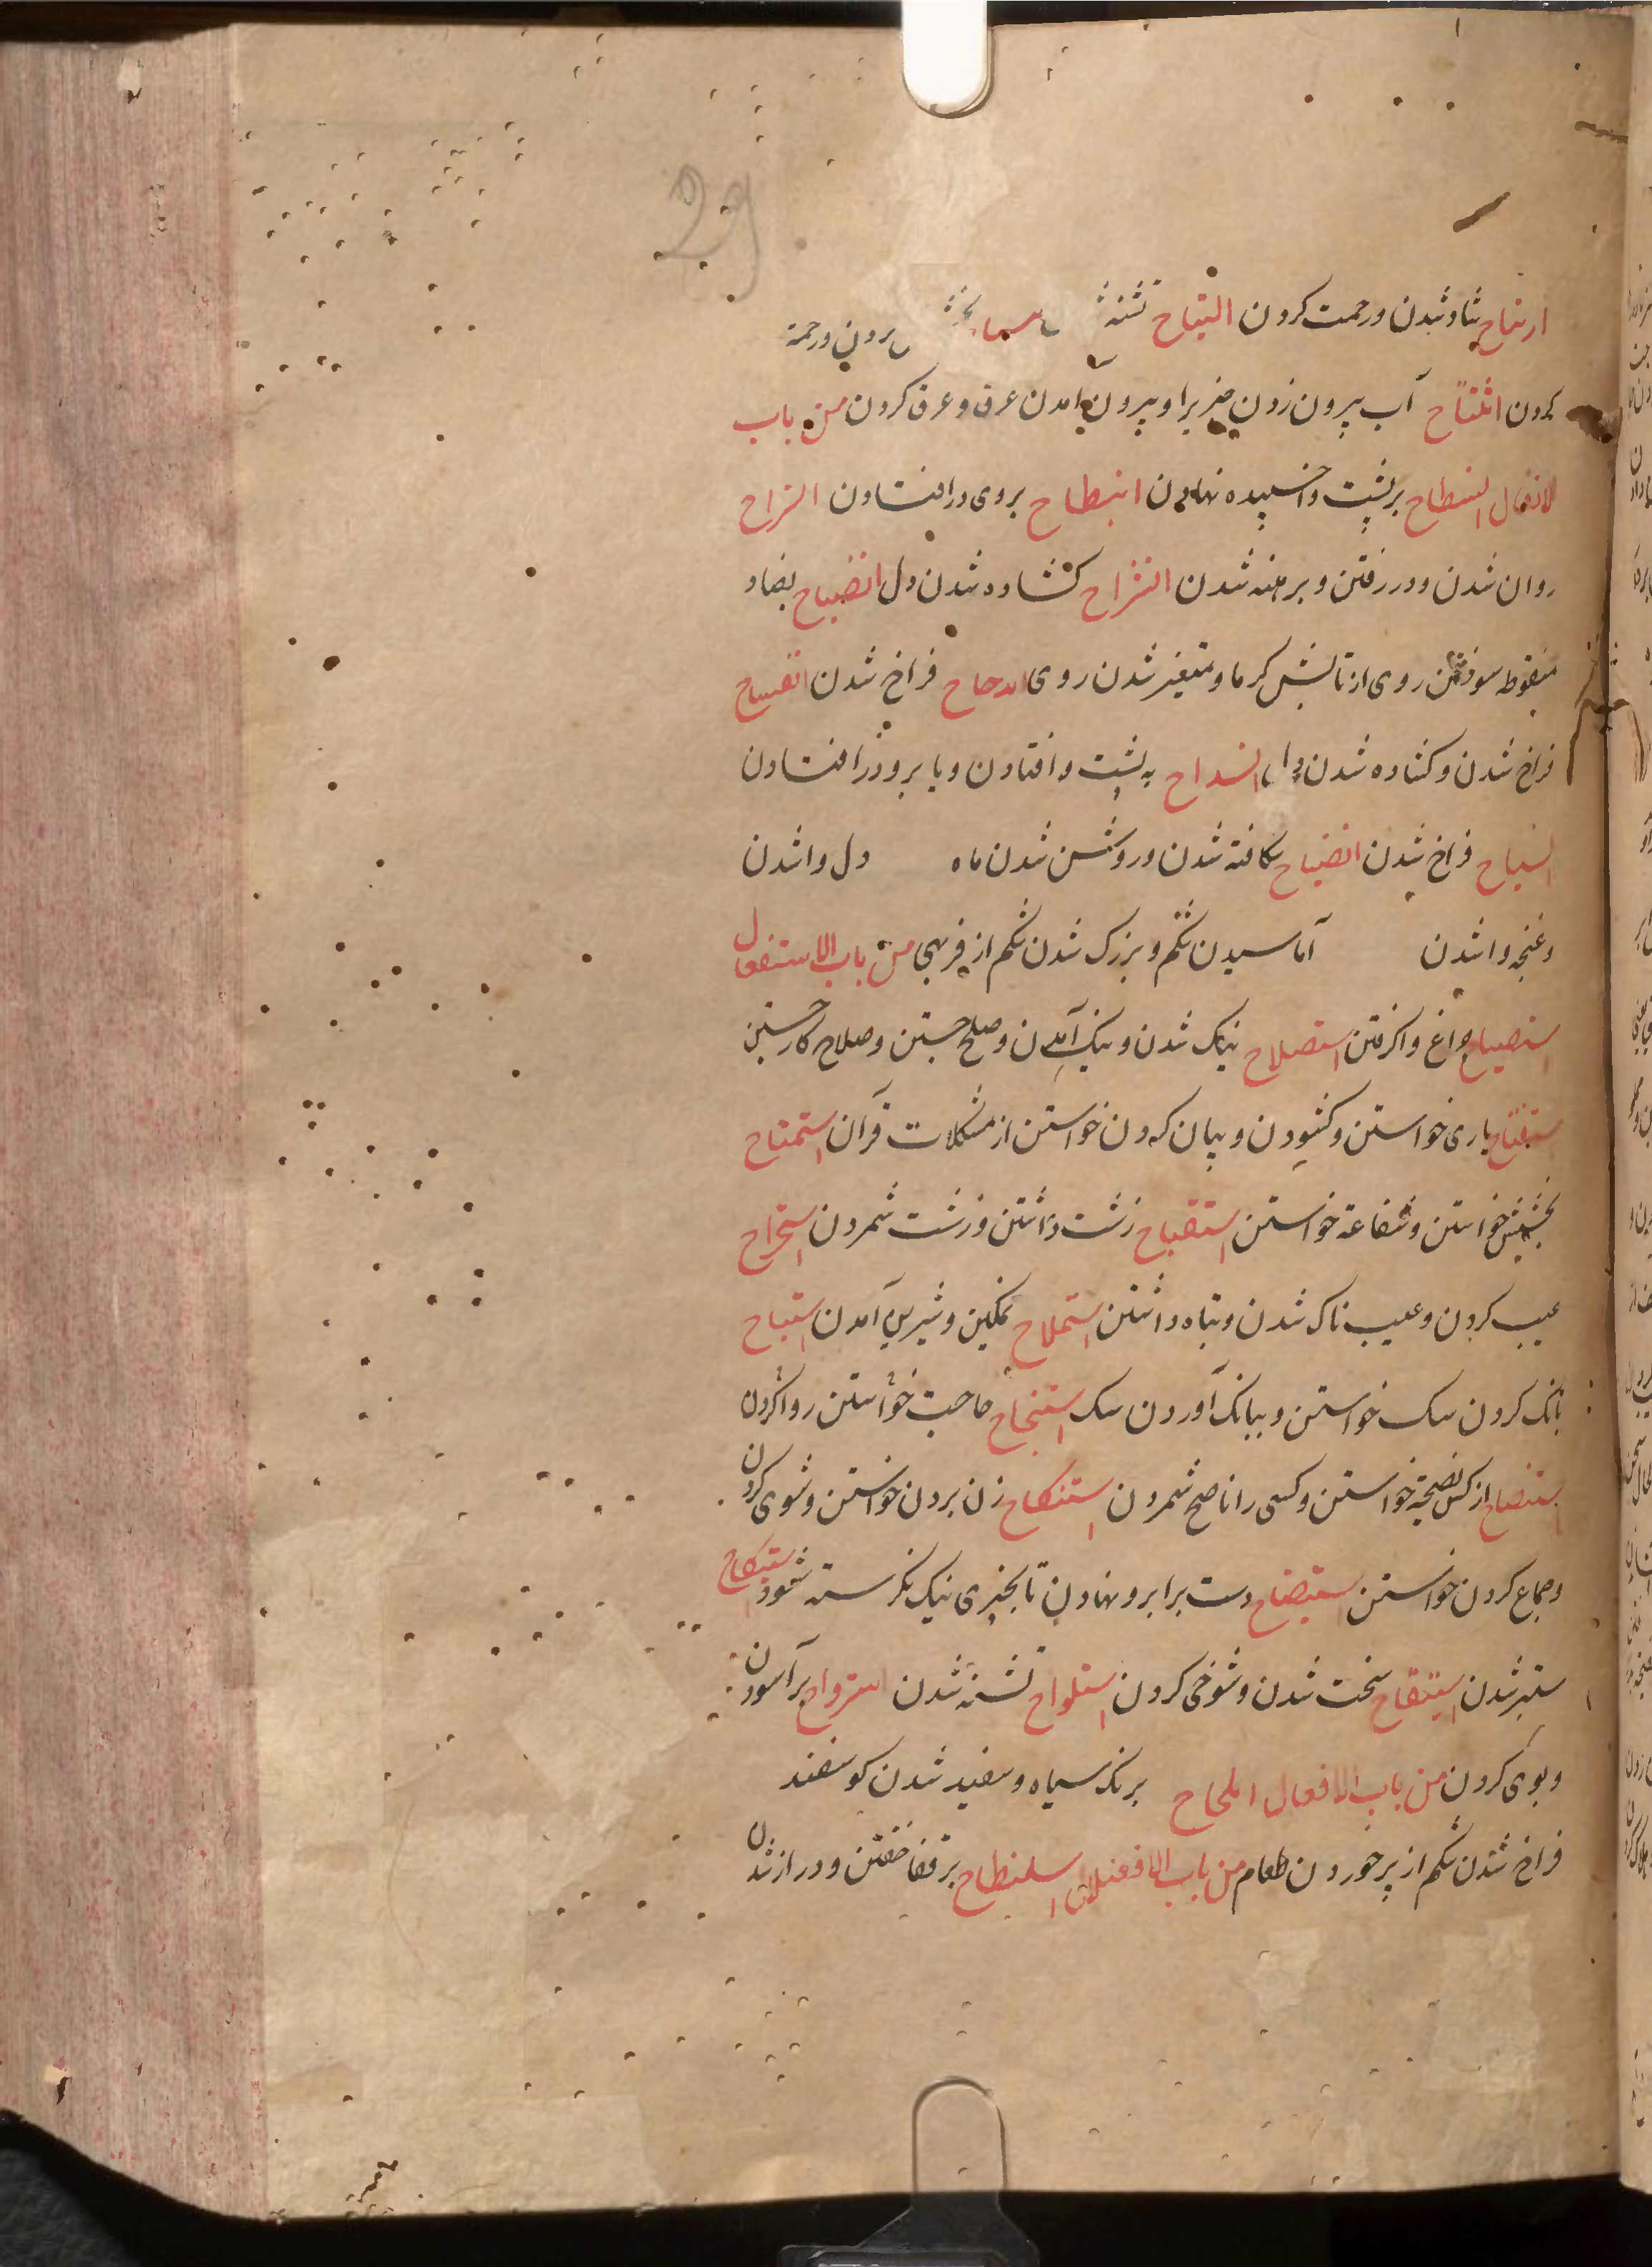 29
ارتیاح شاد شدن ورحمت کردن التیاح تشنه
کردن انتتاح آب بیرون زدن چیزیرا و بیرون آمدن عرق و عرق کردن من باب
الانفعال انسطاح بر پشت واخسپیده نهادن انبطاح بروی درافتادن انسراح
روان شدن ودر رفتن و برهنه شدن انشراح کشاده شدن دل انضباح بضاد
منقوطه سوختن روی از تابش کرما و متغیر شدن روی اندحاح فراخ شدن انفساح
فراخ شدن وکشاده شدن دل انسداح به پشت وافتادن ویا برو درافتادن
انسیاح فراخ شدن انضیاح شکافته شدن وروشن شدن ماه دل واشدن
وغنچه واشدن آماسیدن شکم و بزرک شدن شکم از فربهی من باب الاستفعال
استصباح چراغ واکرفتن استصلاح نیک شدن ونیک آمدن وصلح جستن وصلاح کار جستن
استفتاح یاری خواستن وکشودن و بیان کردن خواستن از مشکلات قرآن استمتاح
بخشش خواستن وشفاعة خواستن استقباح زشت داشتن وزشت شمردن استجراح
عیب کردن وعیب ناک شدن وتباه داشتن استملاح نمکین وشیرین آمدن استنباح
بانک کردن سک خواستن و ببانک آوردن سک استنجاح حاجت خواستن روا کردن
استنصاح از کس نصیحة خواستن وکسی را ناصح شمردن استنکاح زن بردن خواستن وشوی کردن
وجماع کردن خواستن استیضاح دست برابرو نهادن تا بچیزی نیک نکرسته شود
ستبر شدن استیقاح سخت شدن وشوخی کردن استلواح تشنه شدن استرواح برآسودن
وبوی کردن من باب الافعلال املحاح برنک سیاه وسفید شدن کوسفند
فراخ شدن شکم از پر خوردن طعام من باب الافعنلال اسلنطاح بر قفا خفتن ودراز شدن